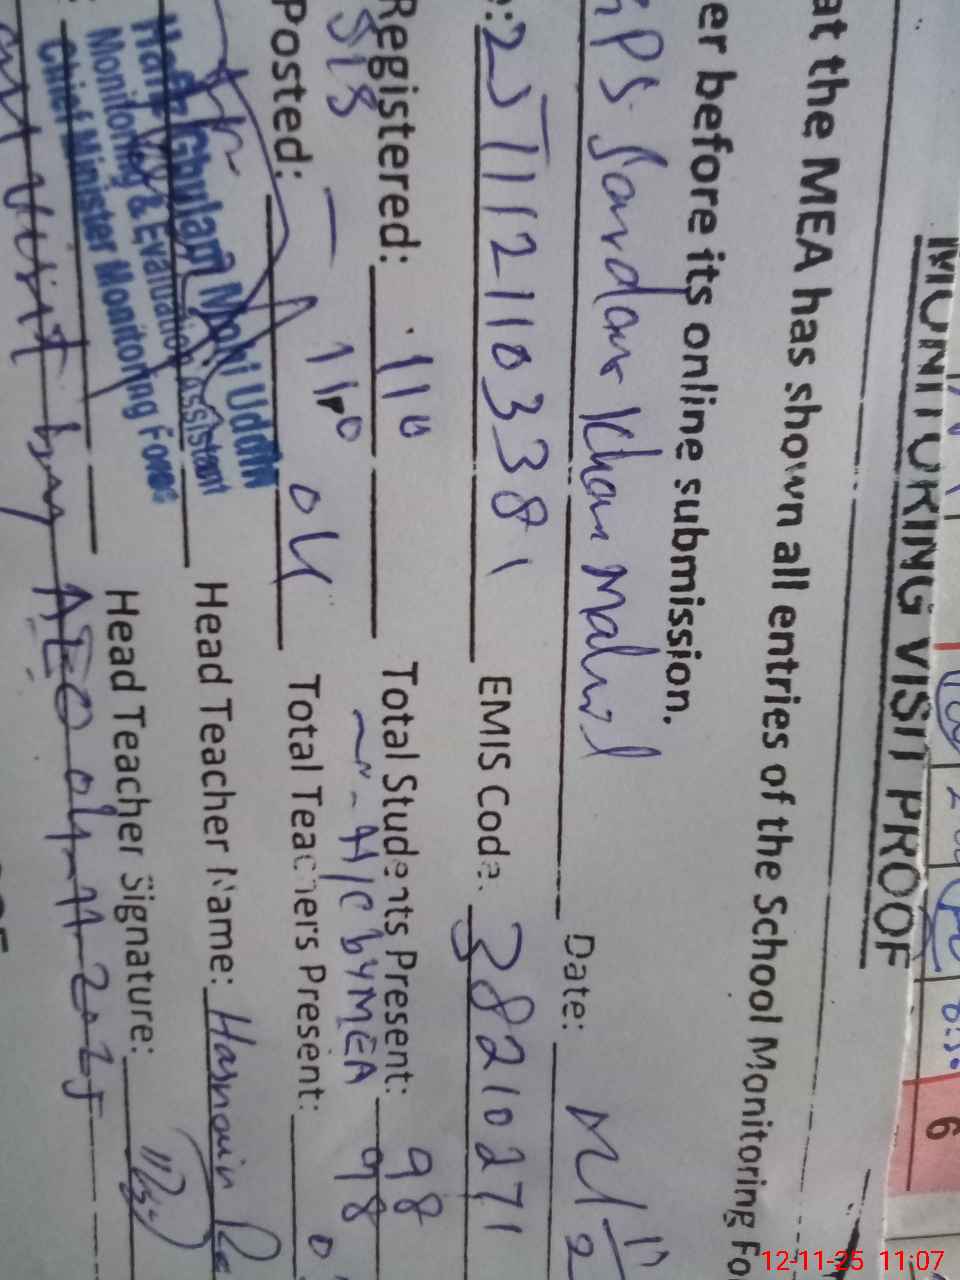 MONITORING VISIT PROOF
at the MEA has shown all entries of the School Monitoring Fo
er before its online submission.
PS Sardar Khan Date:
251121103381 EMIS Code: 38210271
Registered: 110 Total Students Present: 98
518 — 110 H/C by MEA 98
Posted: 04 Total Teachers Present: 0
Hafiz Ghulam Mohi Uddin
Monitoring & Evaluation Assistant
Chief Minister Monitoring Force
Head Teacher Name: Hasnain
Head Teacher Signature:
visit by AEO 04-11-2025
6
12-11-25 11:07